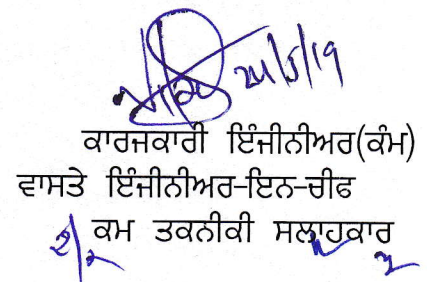 ਕਾਰਜਕਾਰੀ ਇੰਜੀਨੀਅਰ(ਕੰਮ)
ਵਾਸਤੇ ਇੰਜੀਨੀਅਰ-ਇਨ-ਚੀਫ
ਕਮ ਤਕਨੀਕੀ ਸਲਾਹਕਾਰ